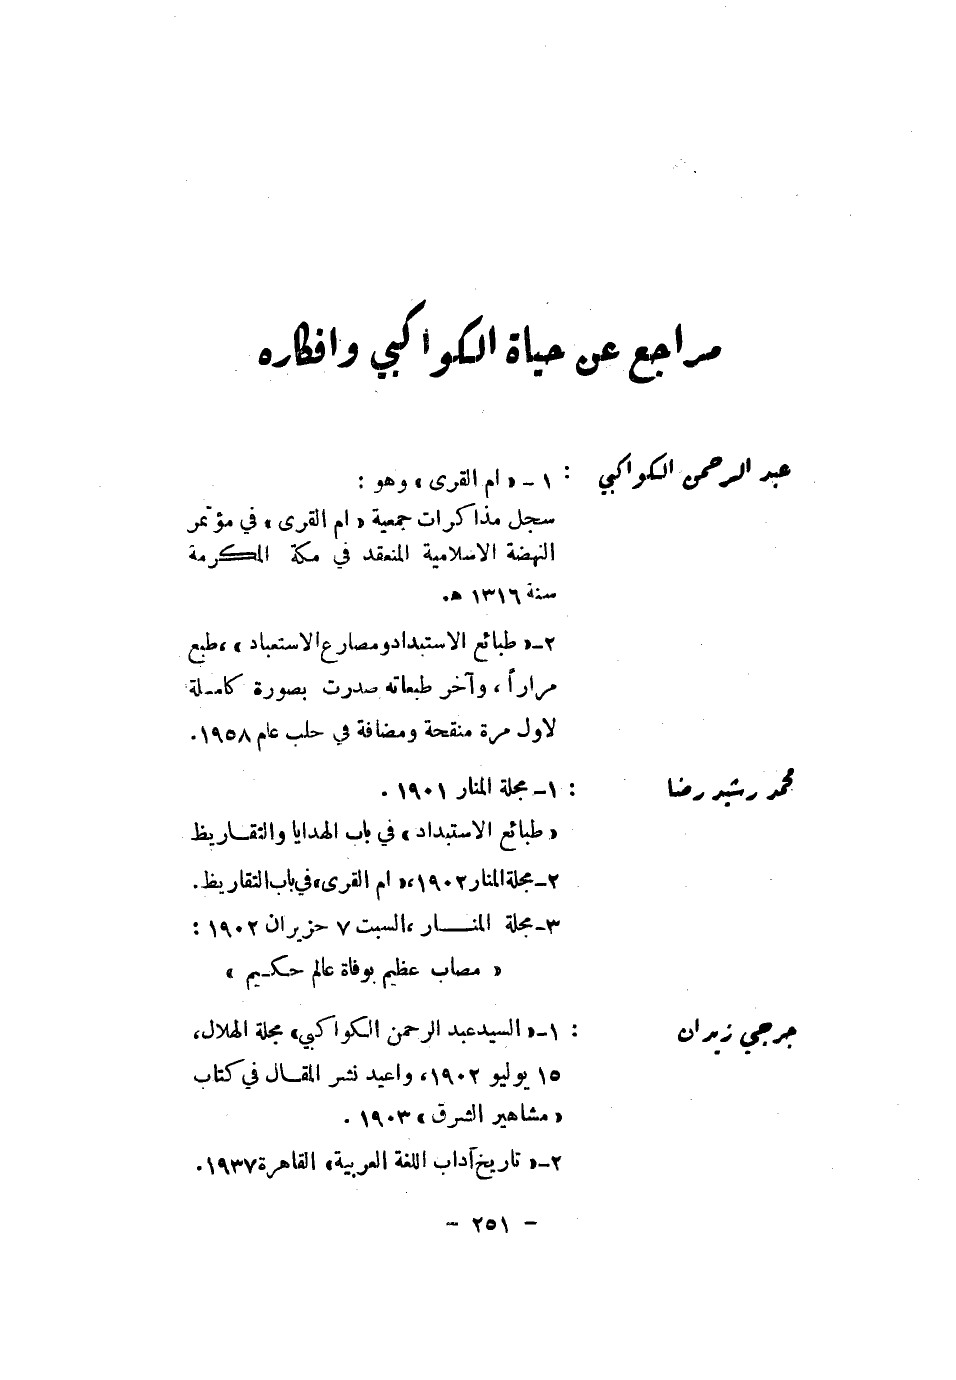 مراجع عن حياة الكواكبي وافكاره
عبد الرحمن الكواكبي : ١ - « ام القرى » وهو :
سجل مذاكرات جمعية « ام القرى » في مؤتمر
النهضة الاسلامية المنعقد في مكة المكرمة
سنة ١٣١٦ هـ.
٢- « طبائع الاستبداد ومصارع الاستعباد » ، طبع
مراراً ، وآخر طبعاته صدرت بصورة كاملة
لاول مرة منقحة ومضافة في حلب عام ١٩٥٨.
محمد رشيد رضا : ١- مجلة المنار ١٩٠١ .
« طبائع الاستبداد » في باب الهدايا والتقاريظ
٢- مجلة المنار ١٩٠٢، « ام القرى » في باب التقاريظ.
٣- مجلة المنار ، السبت ٧ حزيران ١٩٠٢ :
« مصاب عظيم بوفاة عالم حكيم »
جرجي زيدان : ١- « السيد عبد الرحمن الكواكبي » مجلة الهلال،
١٥ يوليو ١٩٠٢، واعيد نشر المقال في كتاب
« مشاهير الشرق » ١٩٠٣ .
٢- « تاريخ آداب اللغة العربية » القاهرة ١٩٣٧.
- ٢٥١ -